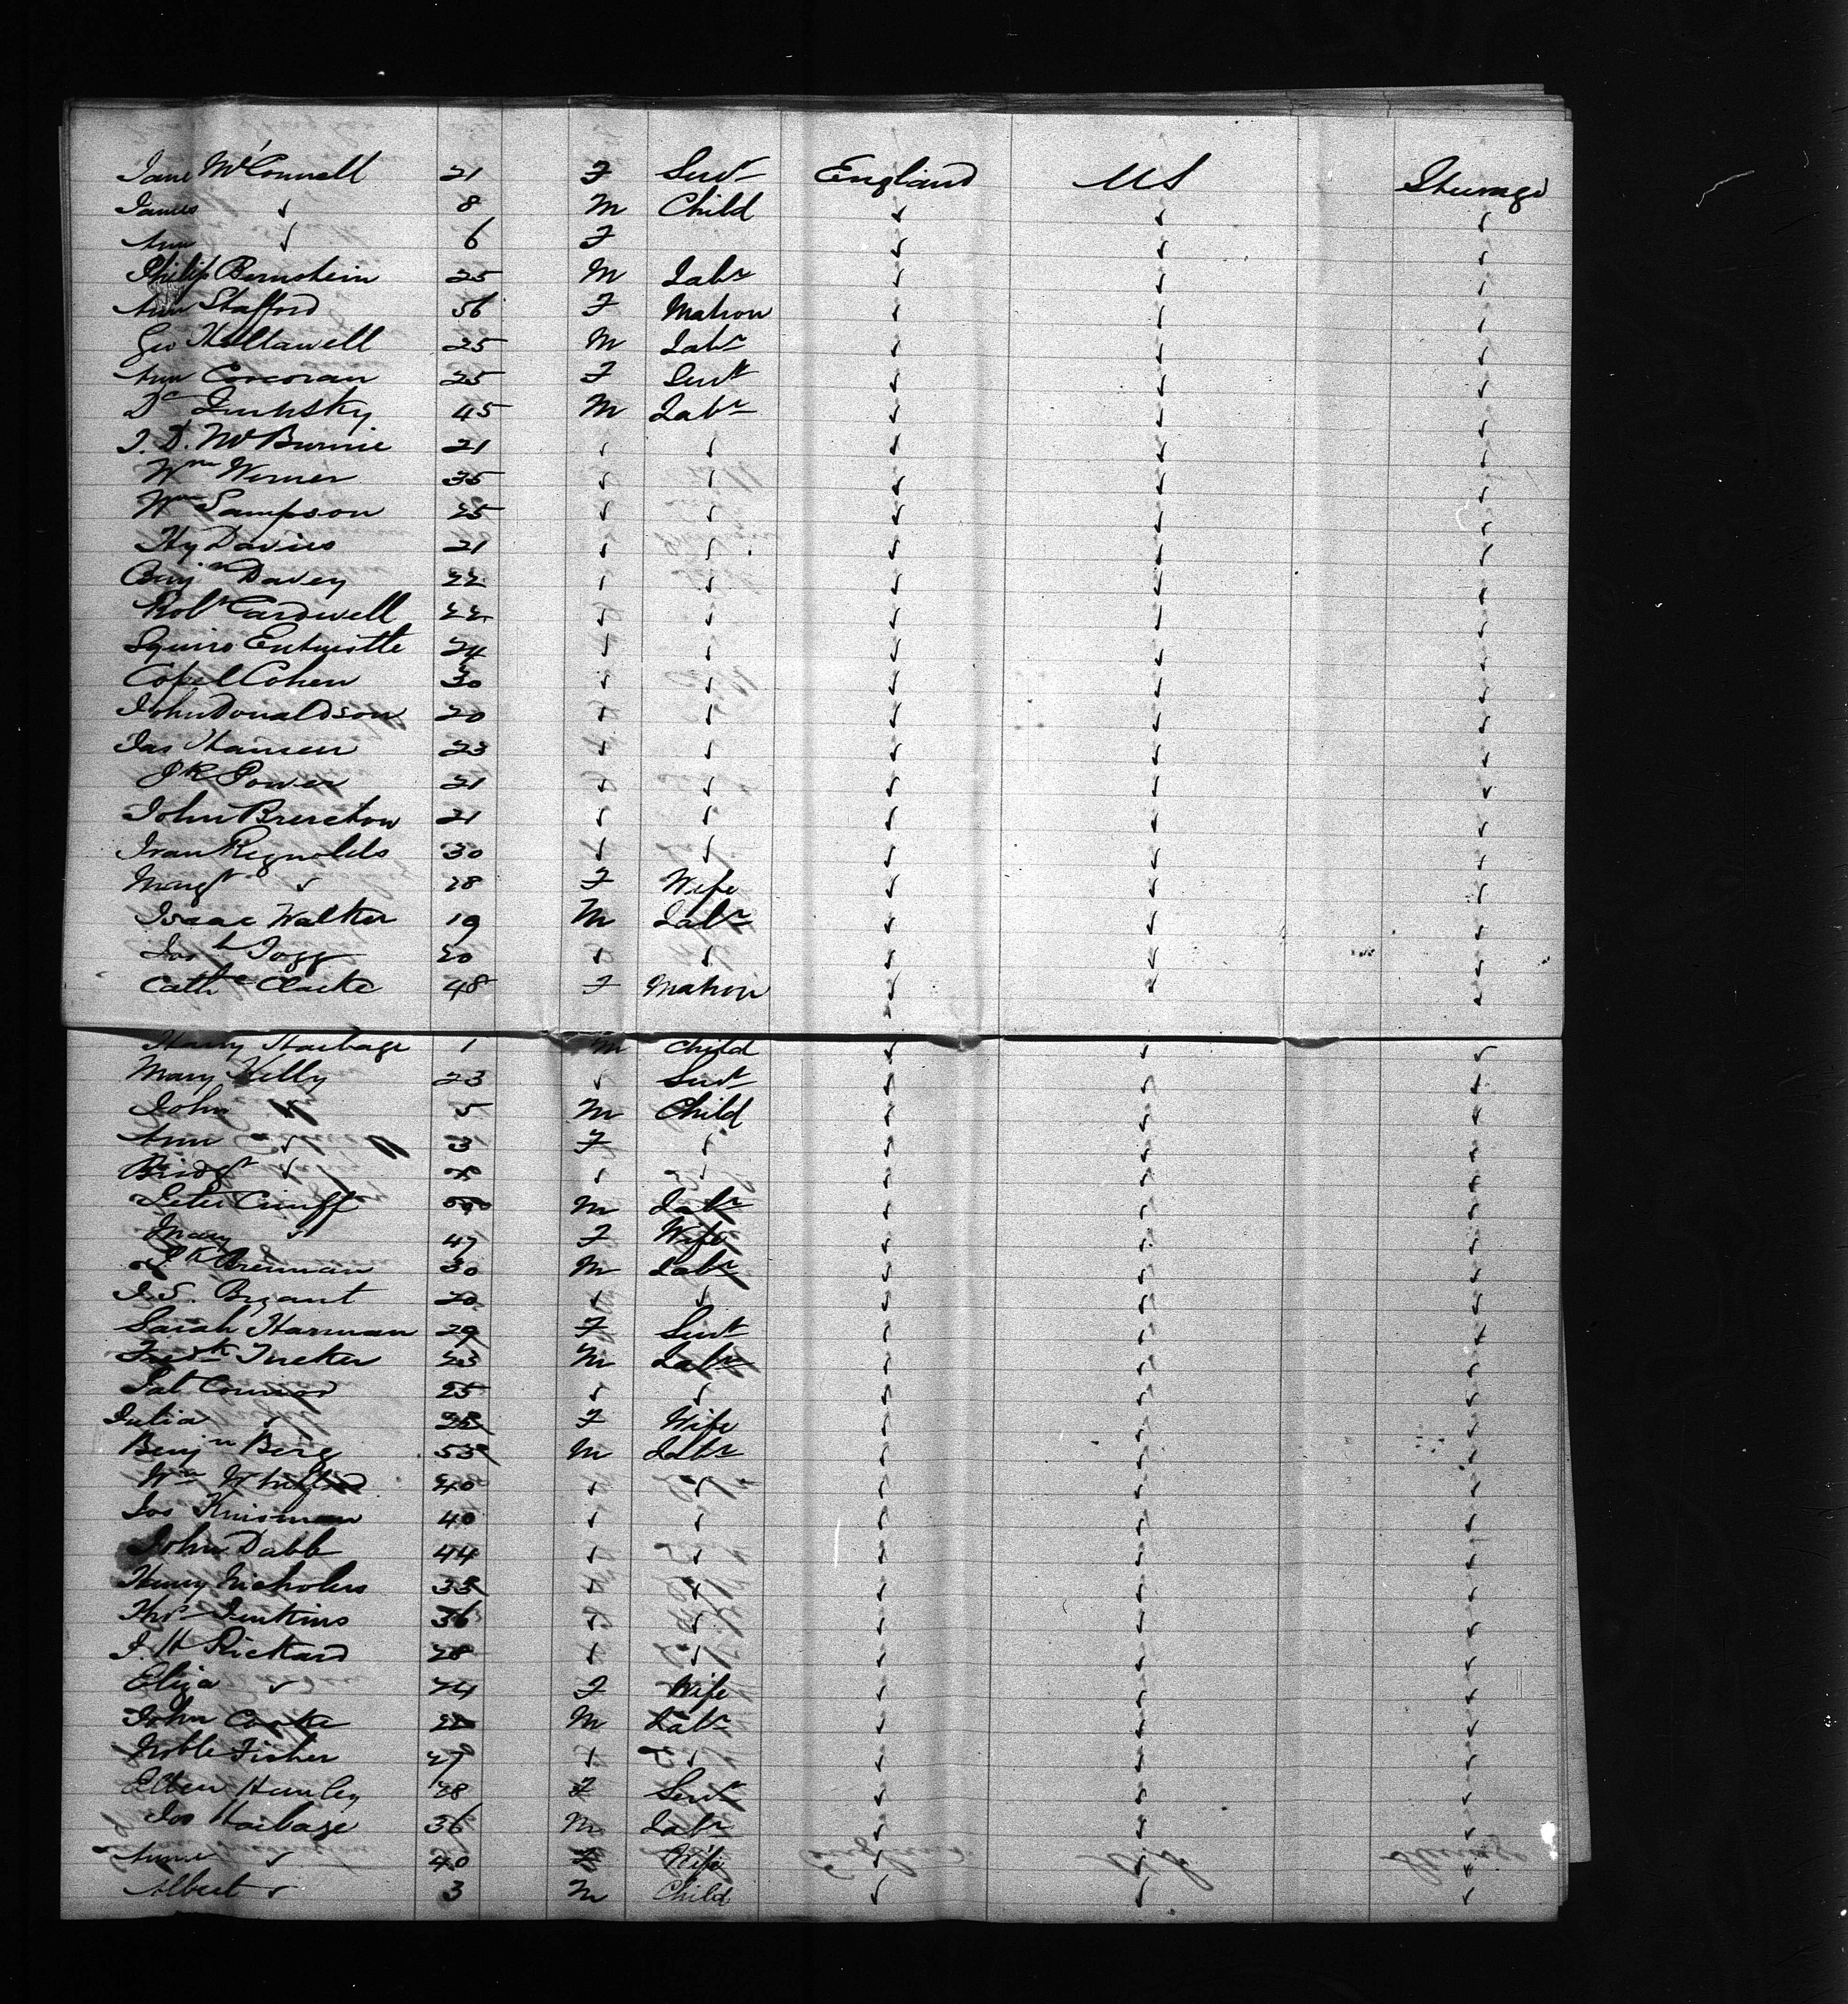 Jane McConnell 21 F Servt England US Steerage
James ✓ 8 M Child ✓ ✓ ✓
Ann ✓ 6 F ✓ ✓ ✓
Philip Bernstein 25 M Labr ✓ ✓ ✓
Ann Stafford 56 F Matron ✓ ✓ ✓
Geo Hallawell 25 M Labr ✓ ✓ ✓
Ann Corcoran 25 F Servt ✓ ✓ ✓
45 M Labr ✓ ✓ ✓
J. D. McBurnie 21 ✓ ✓ ✓ ✓ ✓
Wm Werner 35 ✓ ✓ ✓ ✓ ✓
Wm Sampson 25 ✓ ✓ ✓ ✓ ✓
Hy Davies 21 ✓ ✓ ✓ ✓ ✓
Benjn Davey 22 ✓ ✓ ✓ ✓ ✓
Robt Cardwell 22 ✓ ✓ ✓ ✓ ✓
Squire Entwistle 24 ✓ ✓ ✓ ✓ ✓
Copel Cohen 30 ✓ ✓ ✓ ✓ ✓
John Donaldson 20 ✓ ✓ ✓ ✓ ✓
Jas Hansen 23 ✓ ✓ ✓ ✓ ✓
Pk Power 21 ✓ ✓ ✓ ✓ ✓
John Brereton 21 ✓ ✓ ✓ ✓ ✓
Ivan Reynolds 30 ✓ ✓ ✓ ✓ ✓
Margt ✓ 28 F Wife ✓ ✓ ✓
Isaac Walker 19 M Labr ✓ ✓ ✓
Josh 20 ✓ ✓ ✓ ✓ ✓
Cathe Clarke 48 F Matron ✓ ✓ ✓
Harry Harbage 1 M Child ✓ ✓ ✓
Mary Kelly 23 ✓ Servt ✓ ✓ ✓
John 5 M Child ✓ ✓ ✓
Ann ✓ 3 F ✓ ✓ ✓ ✓
Bridgt ✓ ✓ ✓ ✓ ✓ ✓
Peter Cuniff M Labr ✓ ✓ ✓
Mary ✓ 47 F Wife ✓ ✓ ✓
Pk Brennan 30 M Labr ✓ ✓ ✓
J. S. Bryant 20 ✓ ✓ ✓ ✓ ✓
Sarah Harman 29 F Servt ✓ ✓ ✓
Fredk Tucker 23 M Labr ✓ ✓ ✓
Pat Connor 25 ✓ ✓ ✓ ✓ ✓
Julia ✓ 25 F Wife ✓ ✓ ✓
Benjn Berg 53 M Labr ✓ ✓ ✓
Wm 40 ✓ ✓ ✓ ✓ ✓
Jos Kinsman 40 ✓ ✓ ✓ ✓ ✓
John Dabb 44 ✓ ✓ ✓ ✓ ✓
Henry Nicholas 35 ✓ ✓ ✓ ✓ ✓
Thos Jenkins 36 ✓ ✓ ✓ ✓ ✓
J. H Rickard 28 ✓ ✓ ✓ ✓ ✓
Eliza ✓ 24 F Wife ✓ ✓ ✓
John Cooke M Labr ✓ ✓ ✓
Noble Fisher 27 ✓ ✓ ✓ ✓ ✓
Ellen Hanley 28 F Servt ✓ ✓ ✓
Jos Harbage 36 M Labr ✓ ✓ ✓
Anne ✓ 40 F Wife ✓ ✓ ✓
Albert ✓ 3 M Child ✓ ✓ ✓